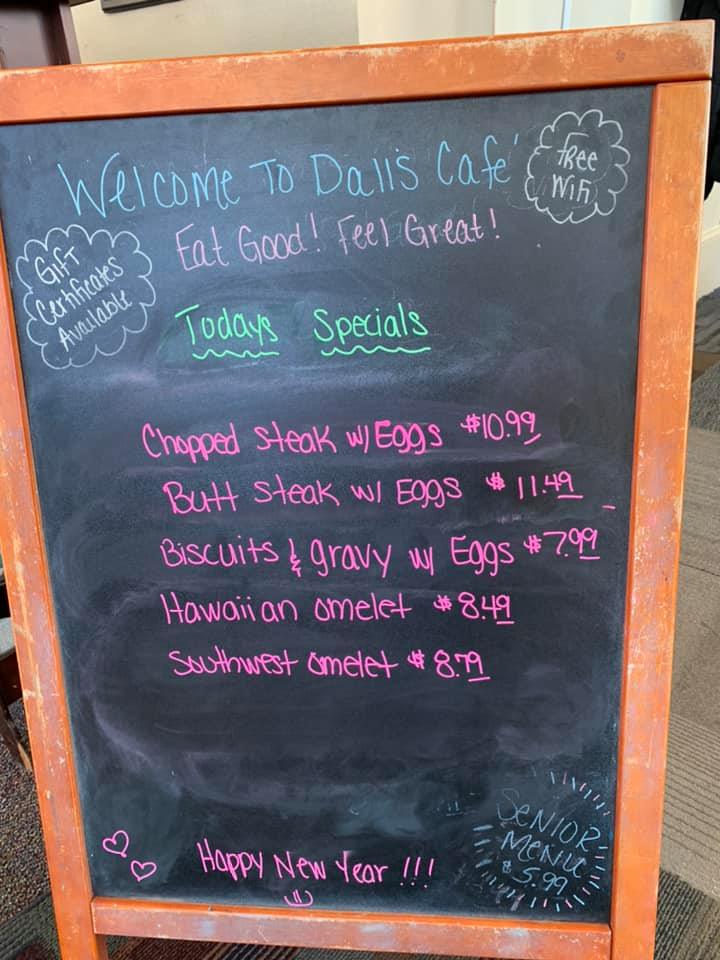 Welcome To Dall's Café
Free
Wifi
Eat Good! Feel Great!
Gift
Certificates
Available
Todays Specials
Chopped Steak w/ Eggs $10.99
Butt Steak w/ Eggs $11.49
Biscuits & gravy w/ Eggs $7.99
Hawaiian omelet $8.49
Southwest omelet $8.79
Happy New Year !!!
SeNIOR
MeNu
$5.99